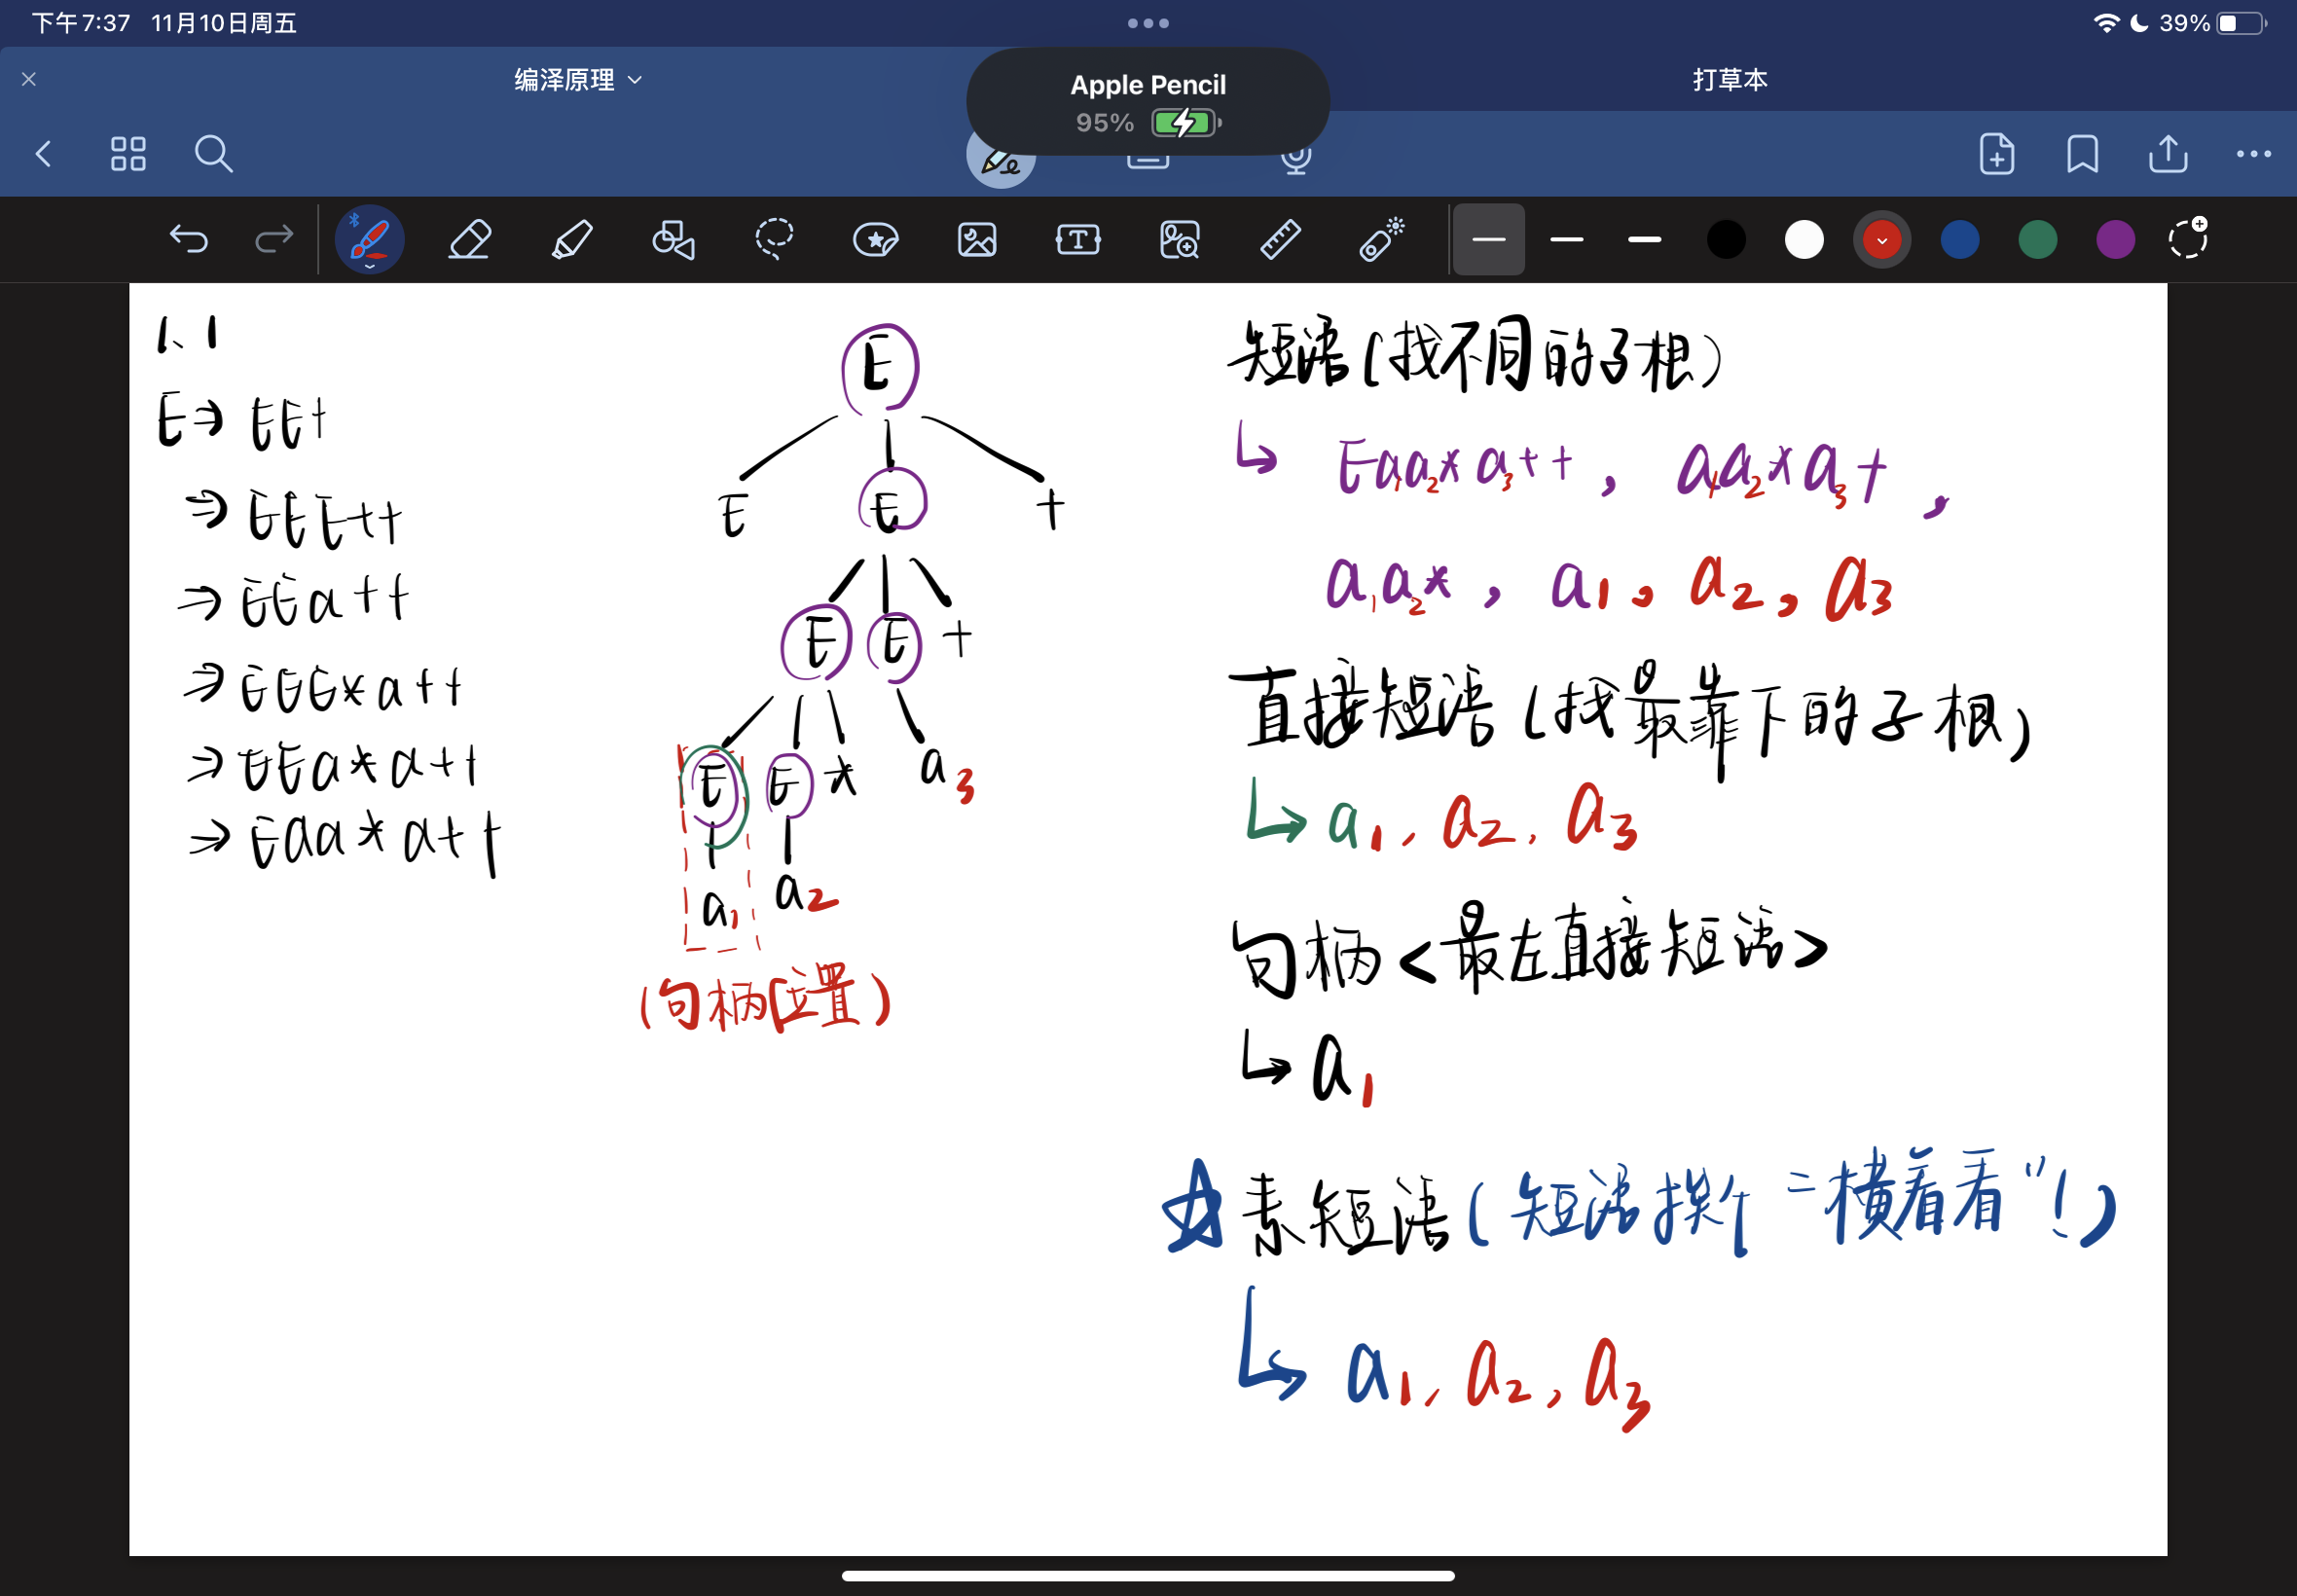 下午7:37 11月10日周五
39%
编泽原理
Apple Pencil
95%
打草本
1、1
E⇒ EE+
⇒ EEE++
⇒ EEa++
⇒ EEE*a++
⇒ EEa*a++
⇒ Eaa*a++
E
E E +
E E +
E E * a3
a1 a2
(句柄位置)
短语(找不同的子根)
↳ Ea1a2*a3++, a1a2*a3+,
a1a2*, a1, a2, a3
直接短语(找最靠下的子根)
↳ a1, a2, a3
句柄<最左直接短语>
↳ a1
☆素短语(短语挨个"横着看"!)
↳ a1, a2, a3